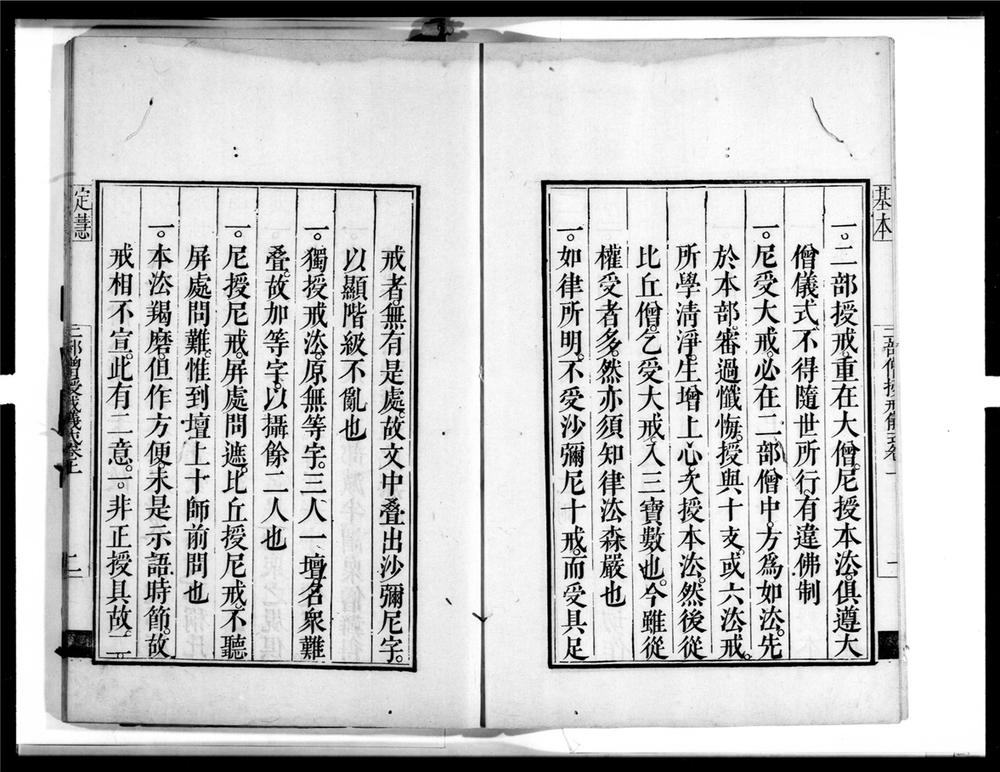 基本
二部僧授戒儀式卷上
一
一。二部授戒。重在大僧。尼授本法。俱遵大
僧儀式。不得隨世所行。有違佛制
一。尼受大戒。必在二部僧中。方爲如法。先
於本部。審過懺悔。授與十支。或六法戒。
所學清淨。生增上心。次授本法。然後從
比丘僧。乞受大戒。入三寶數也。今雖從
權受者多。然亦須知律法森嚴也
一。如律所明。不受沙彌尼十戒。而受具足
戒者。無有是處。故文中叠出沙彌尼字。
以顯階級不亂也
一。獨授戒法。原無等字。三人一壇。名衆難
叠。故加等字。以攝餘二人也
一。尼授尼戒。屏處問遮。比丘授尼戒。不聽
屏處問難。惟到壇上十師前問也
一。本法羯磨。但作方便。未是示語時節。故
戒相不宣。此有二意。一。非正授具故。二
定慧
二部僧授戒儀式卷上
二